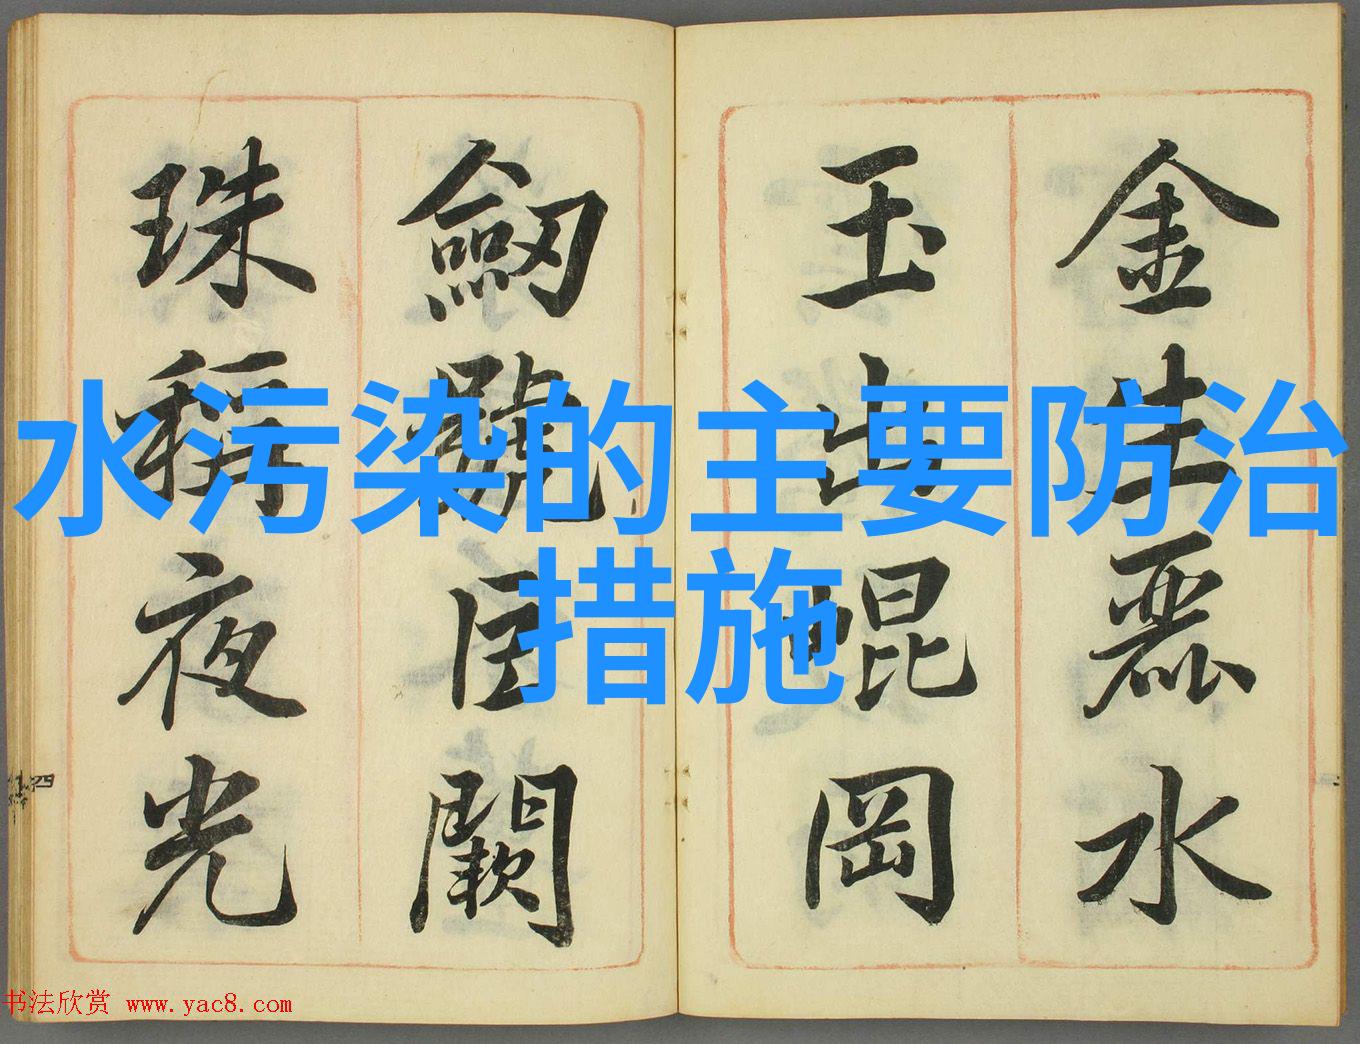 金生麗水
玉出崐岡
劒號巨闕
珠稱夜光
水污染的主要防治
措施
四
书法欣赏 www.yac8.com